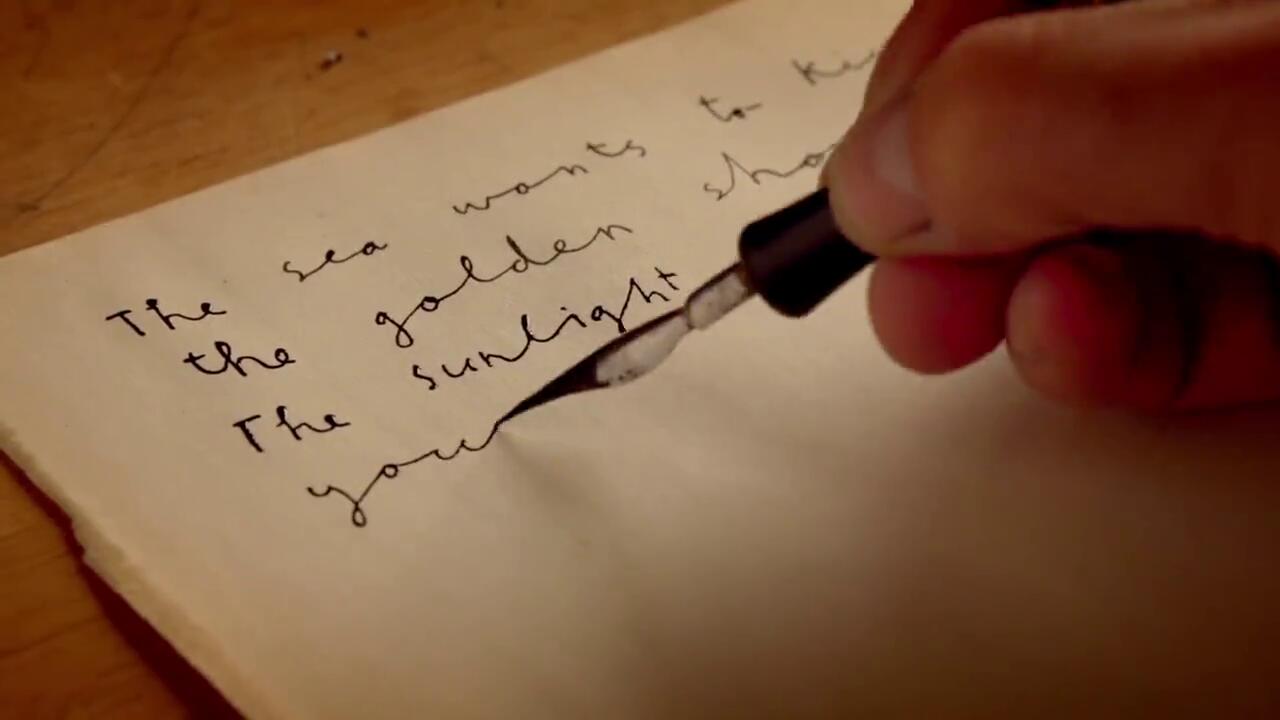 The sea wants to
the golden
The sunlight
you